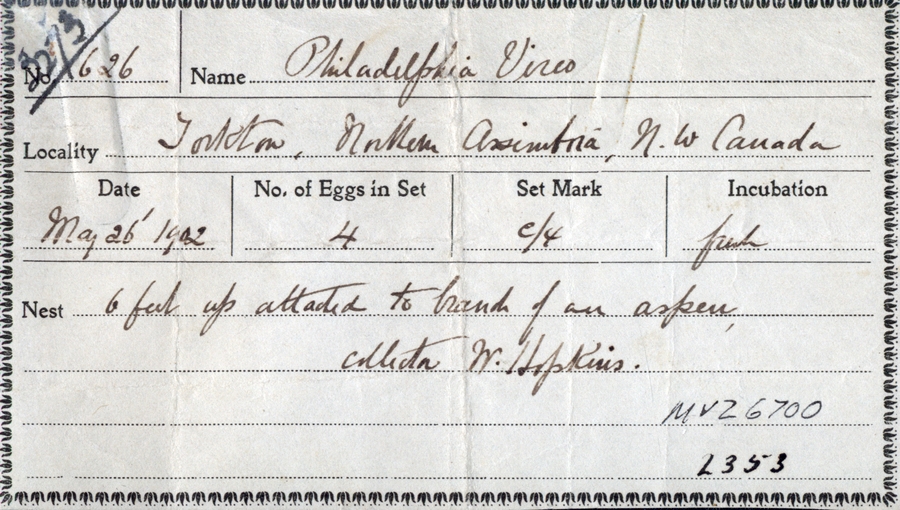 3273
No. 626 Name Philadelphia Vireo
Locality Yorkton, Northern Assiniboia, N.W Canada
Date No. of Eggs in Set Set Mark Incubation
May 26' 1902 4 c/4 fresh
Nest 6 feet up attached to branch of an aspen,
collector W. Hopkins.
MVZ 6700
2353